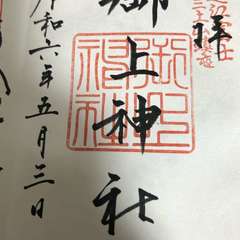 拝
御上神社
令和六年五月三日